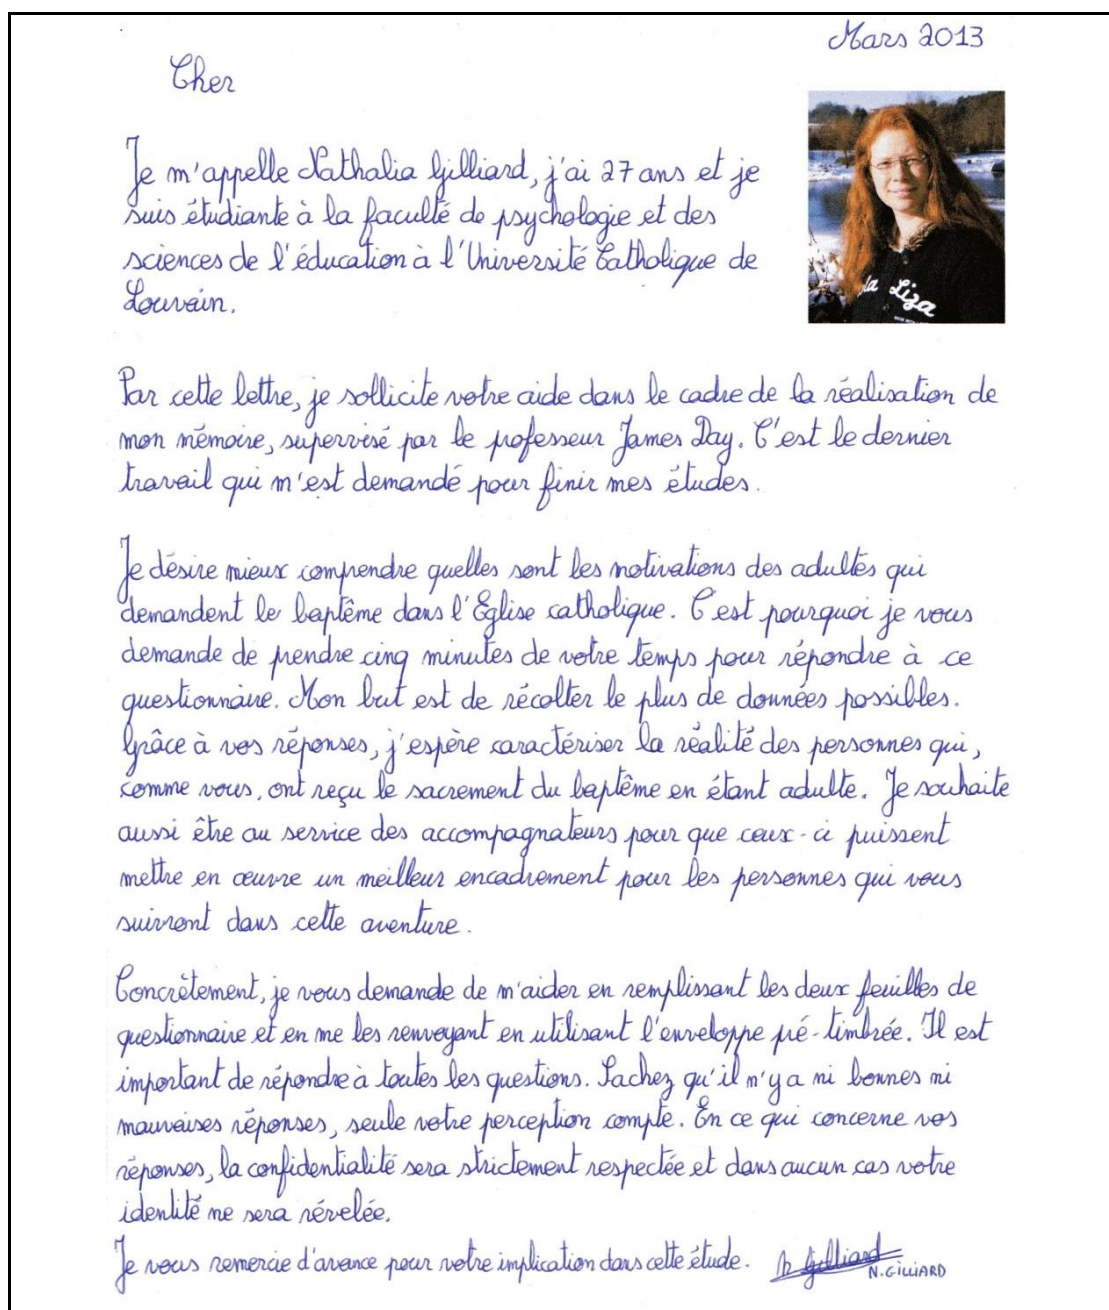 Mars 2013
Cher
Je m'appelle Nathalia Gilliard, j'ai 27 ans et je
suis étudiante à la faculté de psychologie et des
sciences de l'éducation à l'Université Catholique de
Louvain.
la Liza
Par cette lettre, je sollicite votre aide dans le cadre de la réalisation de
mon mémoire, supervisé par le professeur James Day. C'est le dernier
travail qui m'est demandé pour finir mes études.
Je désire mieux comprendre quelles sont les motivations des adultes qui
demandent le baptême dans l'Église catholique. C'est pourquoi je vous
demande de prendre cinq minutes de votre temps pour répondre à ce
questionnaire. Mon but est de récolter le plus de données possibles.
Grâce à vos réponses, j'espère caractériser la réalité des personnes qui,
comme vous, ont reçu le sacrement du baptême en étant adulte. Je souhaite
aussi être au service des accompagnateurs pour que ceux-ci puissent
mettre en œuvre un meilleur encadrement pour les personnes qui vous
suivront dans cette aventure.
Concrètement, je vous demande de m'aider en remplissant les deux feuilles de
questionnaire et en me les renvoyant en utilisant l'enveloppe pré-timbrée. Il est
important de répondre à toutes les questions. Sachez qu'il n'y a ni bonnes ni
mauvaises réponses, seule votre perception compte. En ce qui concerne vos
réponses, la confidentialité sera strictement respectée et dans aucun cas votre
identité ne sera révelée.
Je vous remercie d'avance pour votre implication dans cette étude. N Gilliard
N. GILLIARD